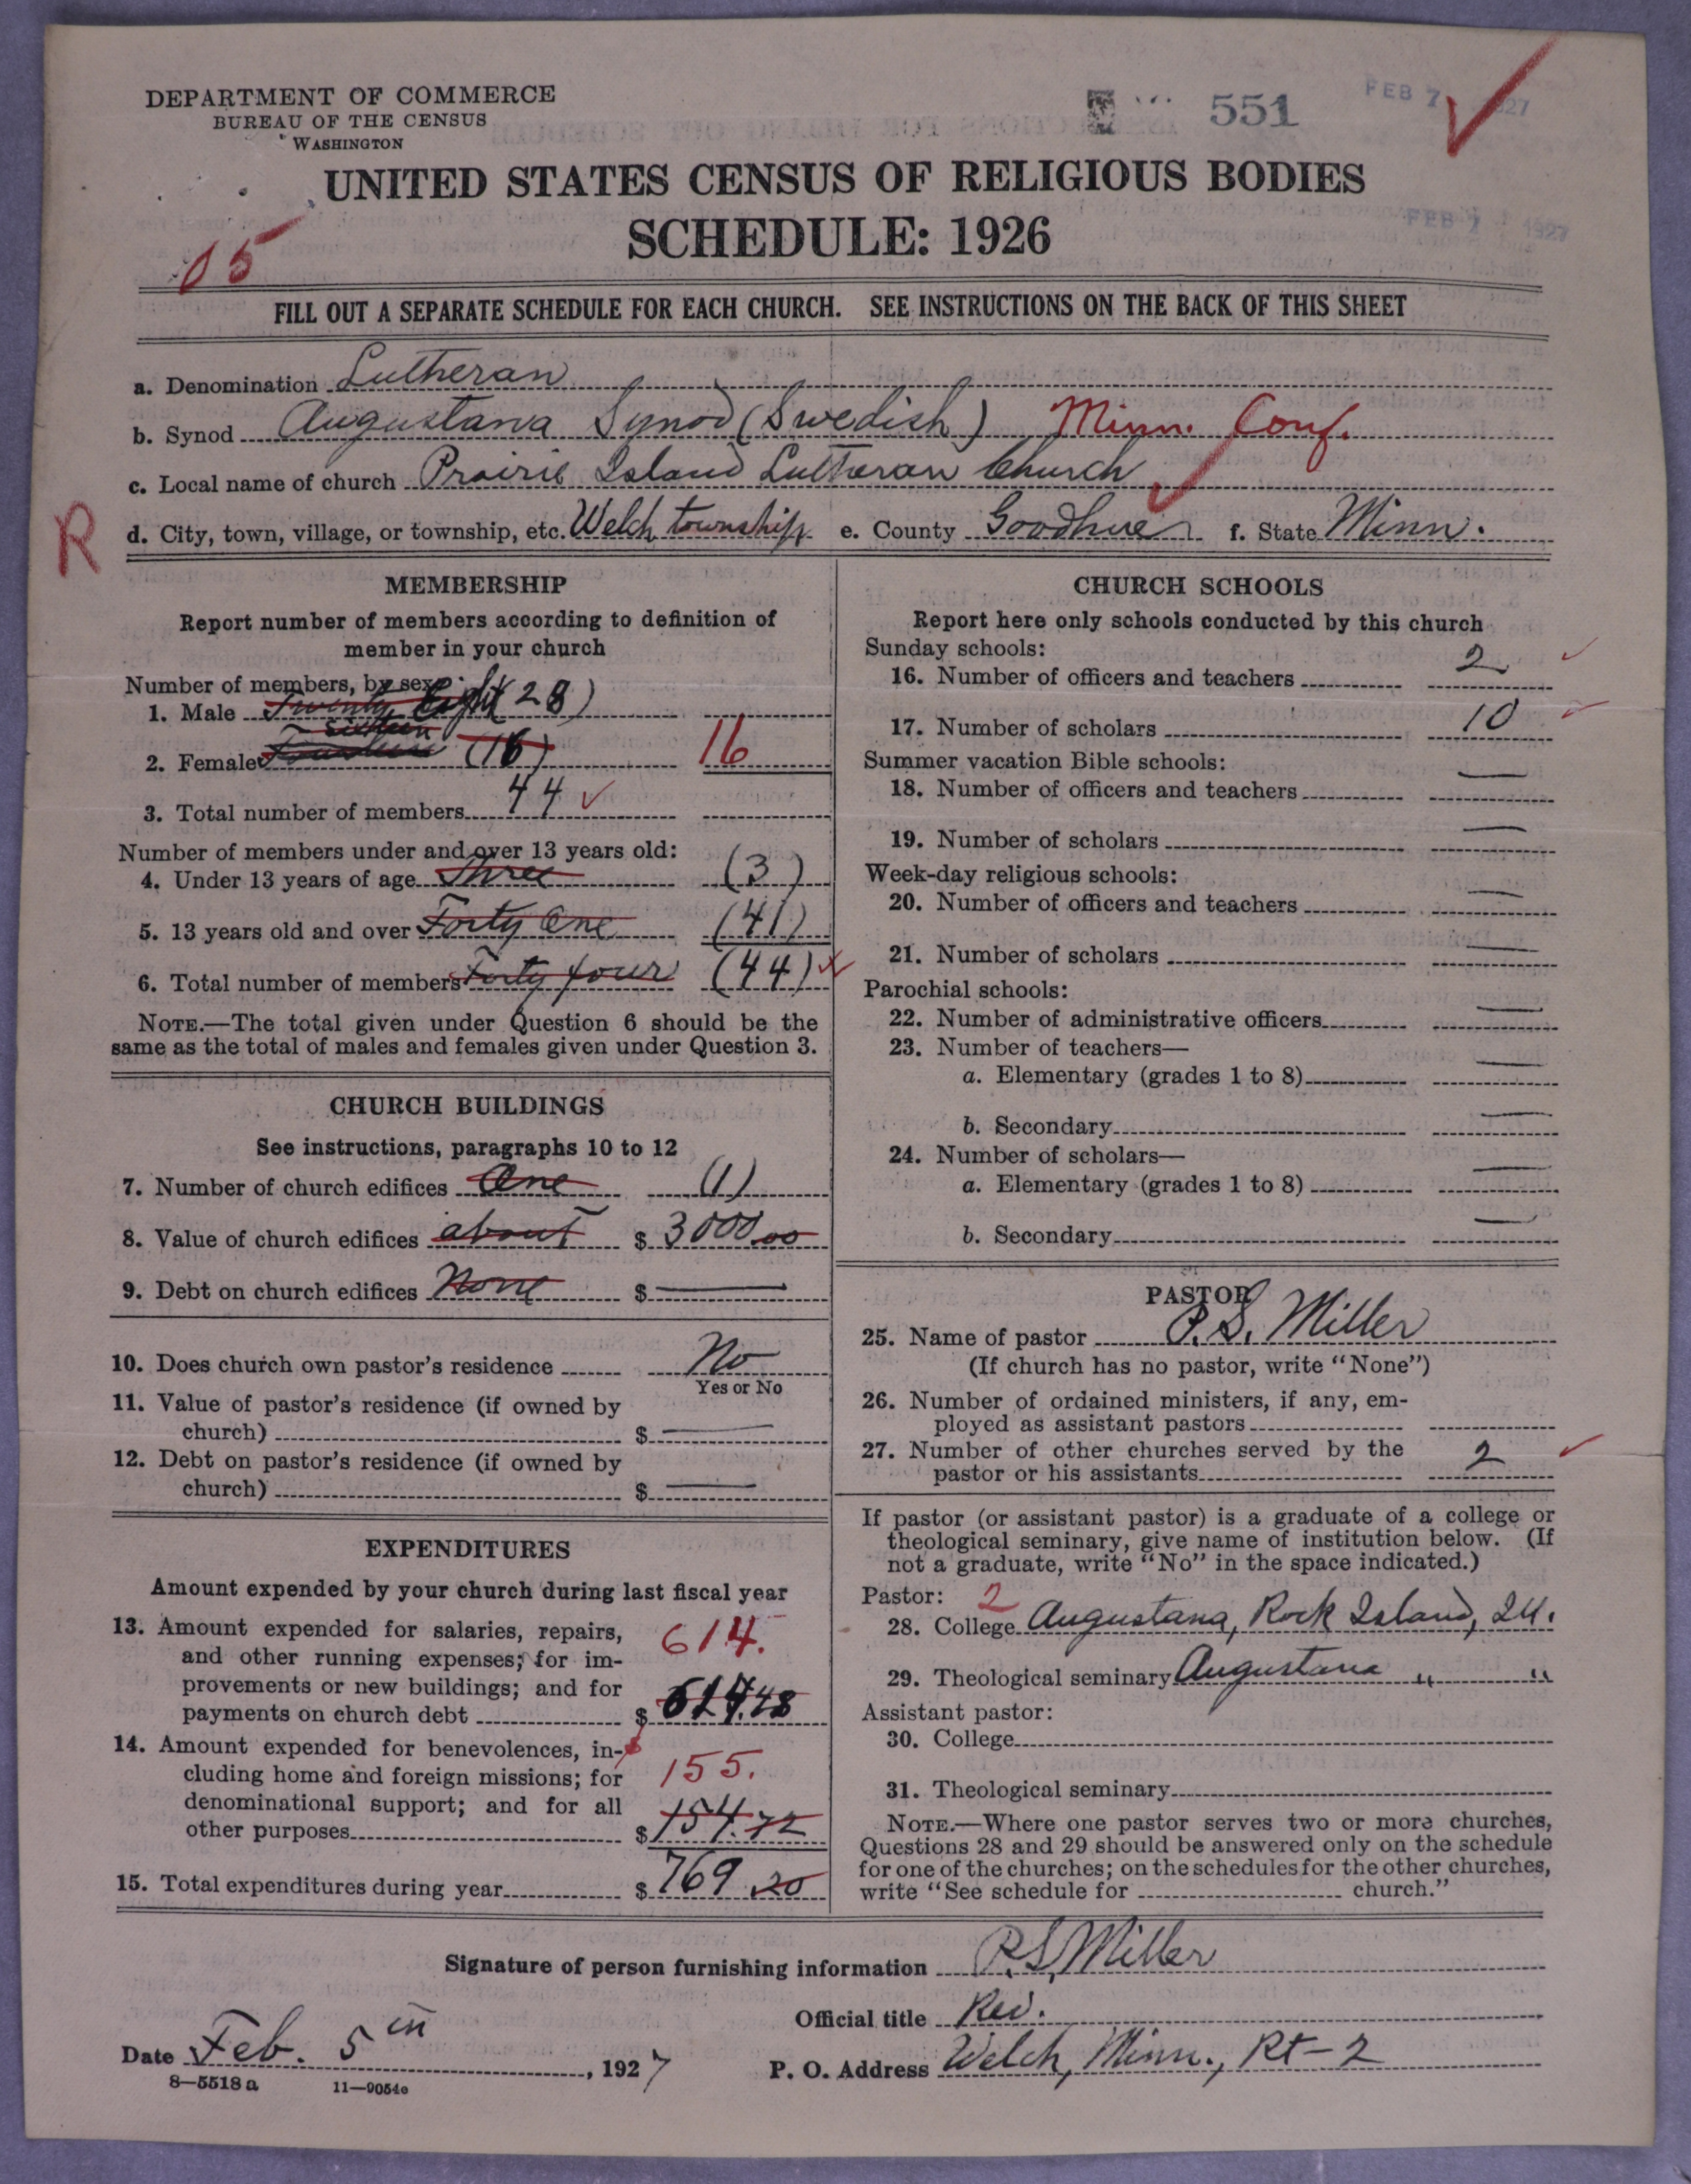 DEPARTMENT OF COMMERCE
BUREAU OF THE CENSUS
WASHINGTON
551
FEB 7 1927
UNITED STATES CENSUS OF RELIGIOUS BODIES
SCHEDULE: 1926
FEB 7 1927
05
FILL OUT A SEPARATE SCHEDULE FOR EACH CHURCH. SEE INSTRUCTIONS ON THE BACK OF THIS SHEET
a. Denomination Lutheran
b. Synod Augustana Synod (Swedish) Minn. Conf.
c. Local name of church Prairie Island Lutheran Church
R
d. City, town, village, or township, etc. Welch township e. County Goodhue f. State Minn.
MEMBERSHIP
Report number of members according to definition of
member in your church
Number of members, by sex:
1. Male Twenty Eight (28)
sixteen
2. Female (16) 16
3. Total number of members 44
Number of members under and over 13 years old:
4. Under 13 years of age Three (3)
5. 13 years old and over Forty One (41)
6. Total number of members Forty four (44)
NOTE.—The total given under Question 6 should be the
same as the total of males and females given under Question 3.
CHURCH BUILDINGS
See instructions, paragraphs 10 to 12
7. Number of church edifices One (1)
8. Value of church edifices about $ 3000.00
9. Debt on church edifices None $ —
10. Does church own pastor's residence No
Yes or No
11. Value of pastor's residence (if owned by
church) $ —
12. Debt on pastor's residence (if owned by
church) $ —
EXPENDITURES
Amount expended by your church during last fiscal year
13. Amount expended for salaries, repairs,
and other running expenses; for im-
provements or new buildings; and for
payments on church debt 614. $ 614.48
14. Amount expended for benevolences, in-
cluding home and foreign missions; for
denominational support; and for all
other purposes 155. $ 154.72
15. Total expenditures during year $ 769.20
CHURCH SCHOOLS
Report here only schools conducted by this church
Sunday schools:
16. Number of officers and teachers 2
17. Number of scholars 10
Summer vacation Bible schools:
18. Number of officers and teachers —
19. Number of scholars —
Week-day religious schools:
20. Number of officers and teachers —
21. Number of scholars —
Parochial schools:
22. Number of administrative officers —
23. Number of teachers—
a. Elementary (grades 1 to 8) —
b. Secondary —
24. Number of scholars—
a. Elementary (grades 1 to 8) —
b. Secondary —
PASTOR
25. Name of pastor P. S. Miller
(If church has no pastor, write "None")
26. Number of ordained ministers, if any, em-
ployed as assistant pastors
27. Number of other churches served by the
pastor or his assistants 2
If pastor (or assistant pastor) is a graduate of a college or
theological seminary, give name of institution below. (If
not a graduate, write "No" in the space indicated.)
Pastor: 2
28. College Augustana, Rock Island, Ill.
29. Theological seminary Augustana " "
Assistant pastor:
30. College
31. Theological seminary
NOTE.—Where one pastor serves two or more churches,
Questions 28 and 29 should be answered only on the schedule
for one of the churches; on the schedules for the other churches,
write "See schedule for church."
Signature of person furnishing information P. S. Miller
Official title Rev.
Date Feb. 5th, 1927
P. O. Address Welch, Minn., Rt-2
8—5518a 11—9054e